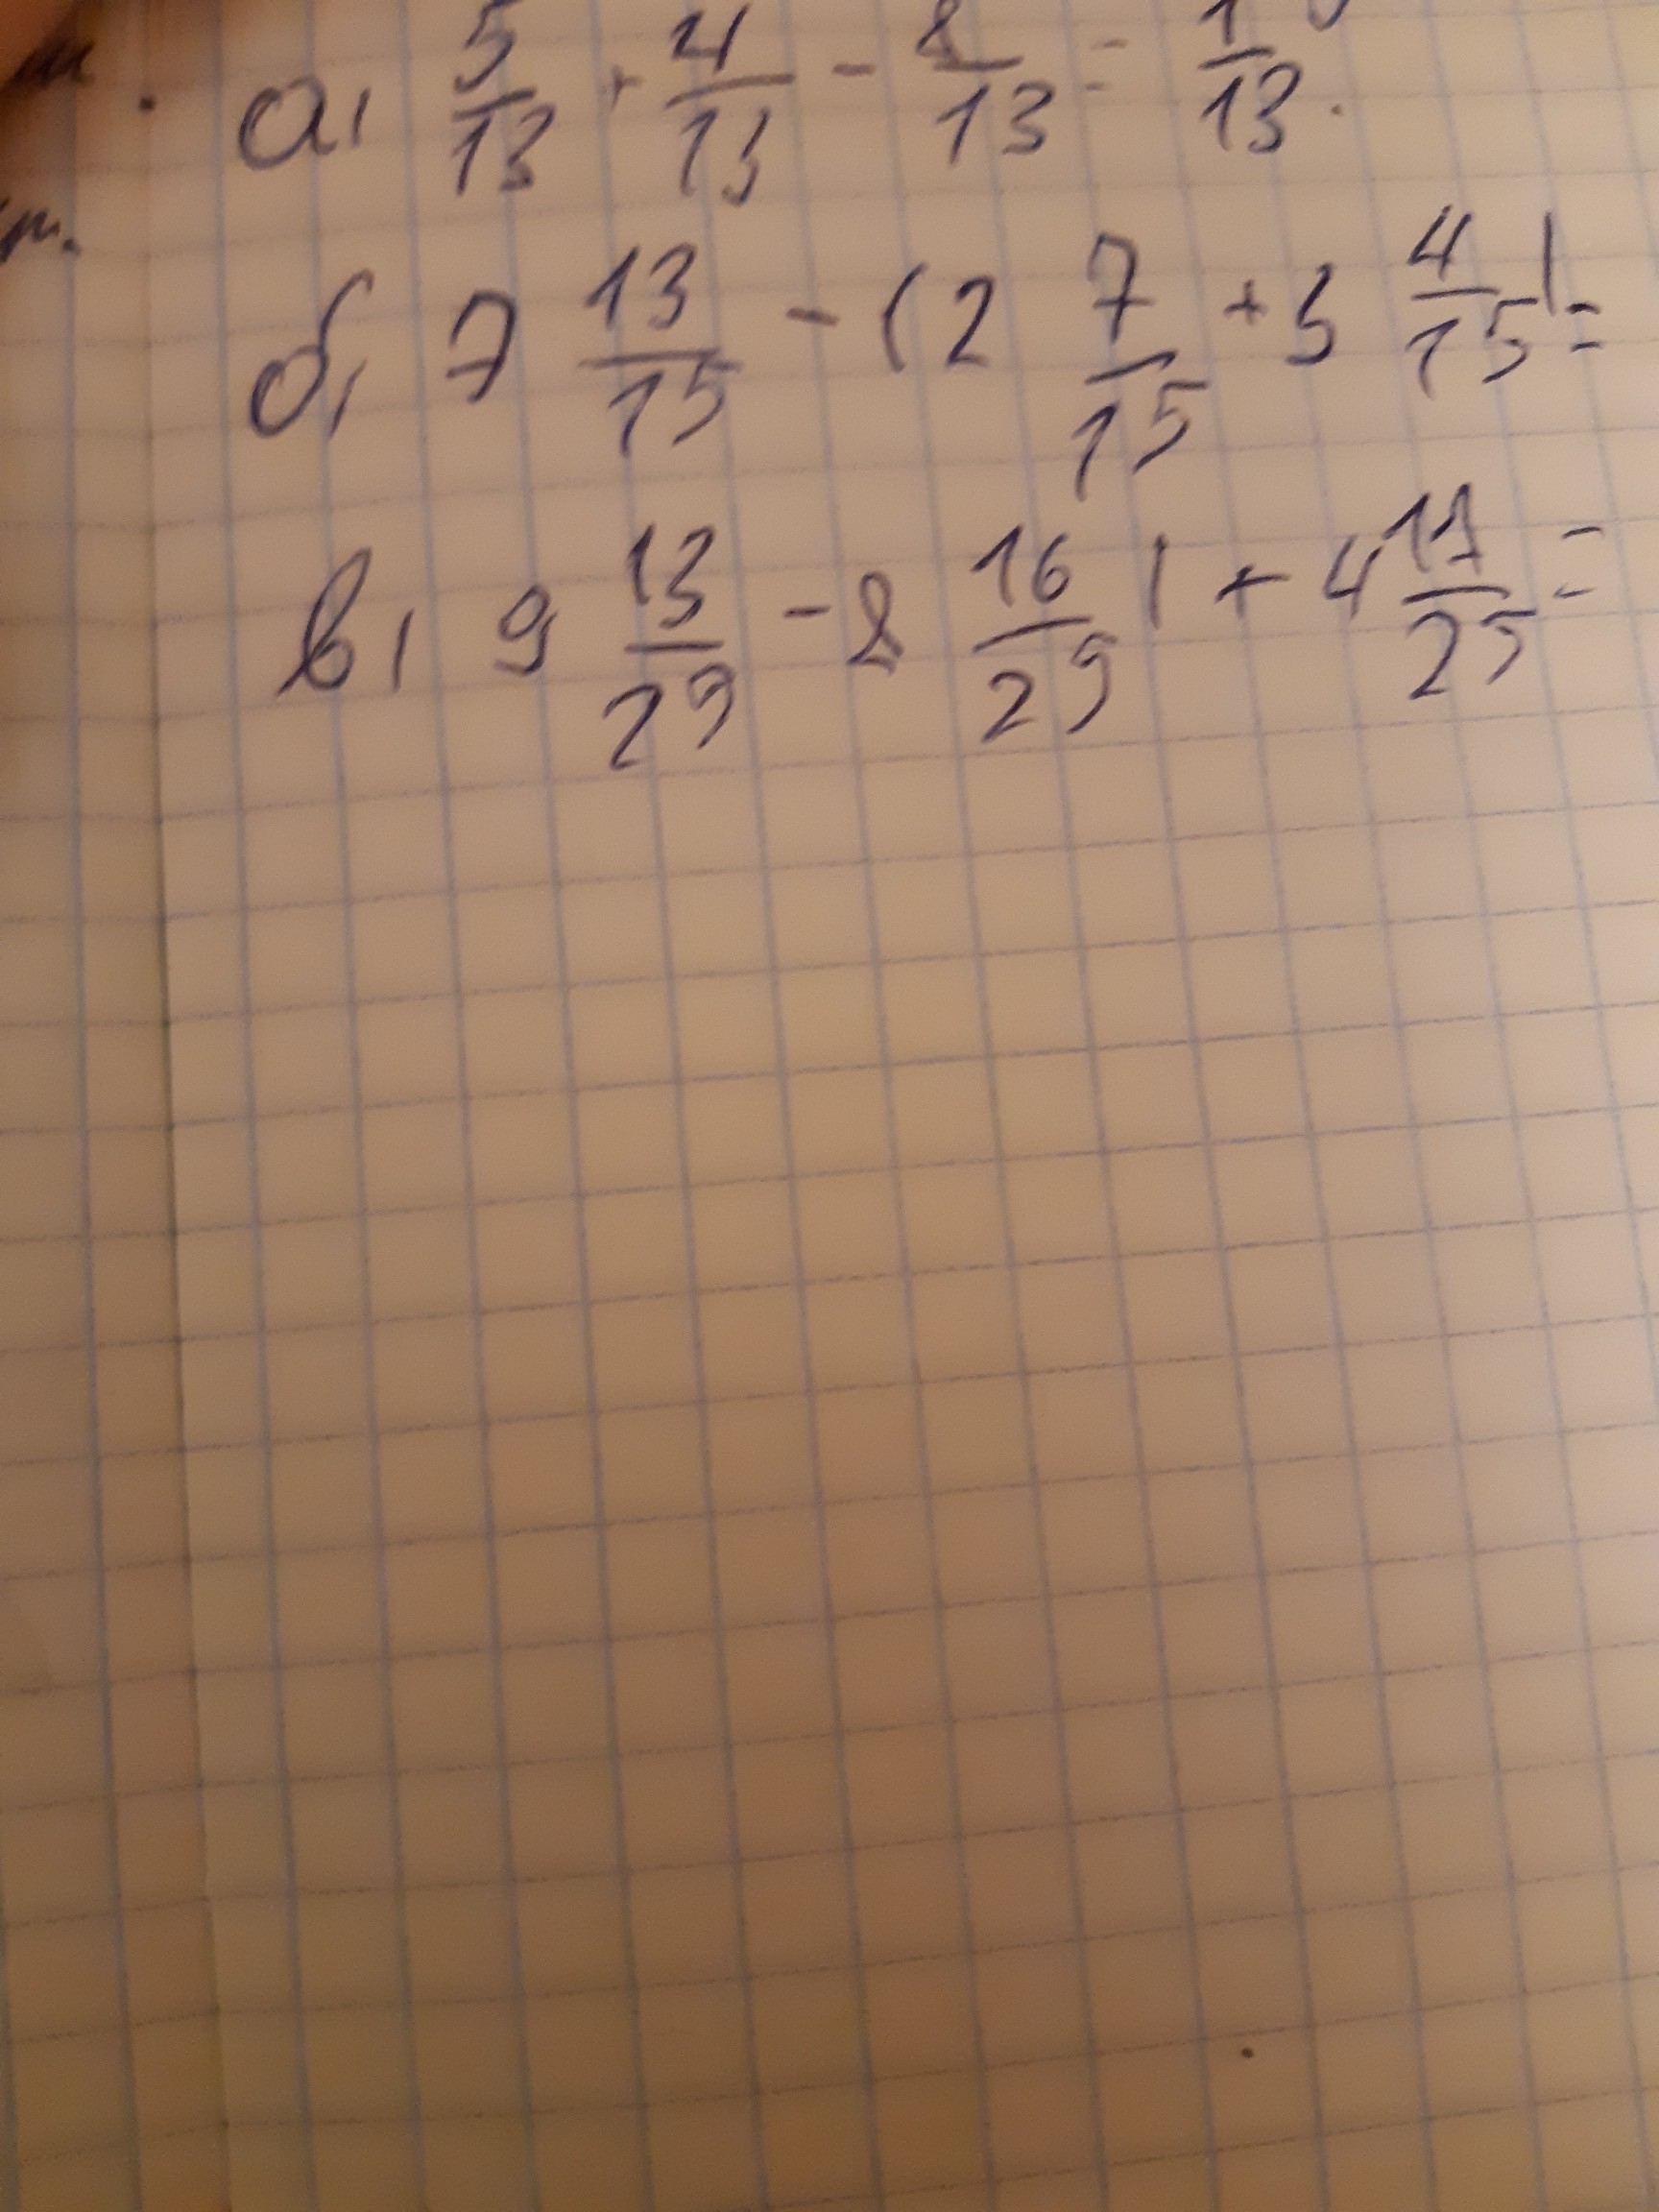 а) 5/13 + 4/13 - 8/13 = 1/13.
б) 7 13/15 - (2 7/15 + 3 4/15) =
в) 9 13/29 - 8 16/29) + 4 17/25 =